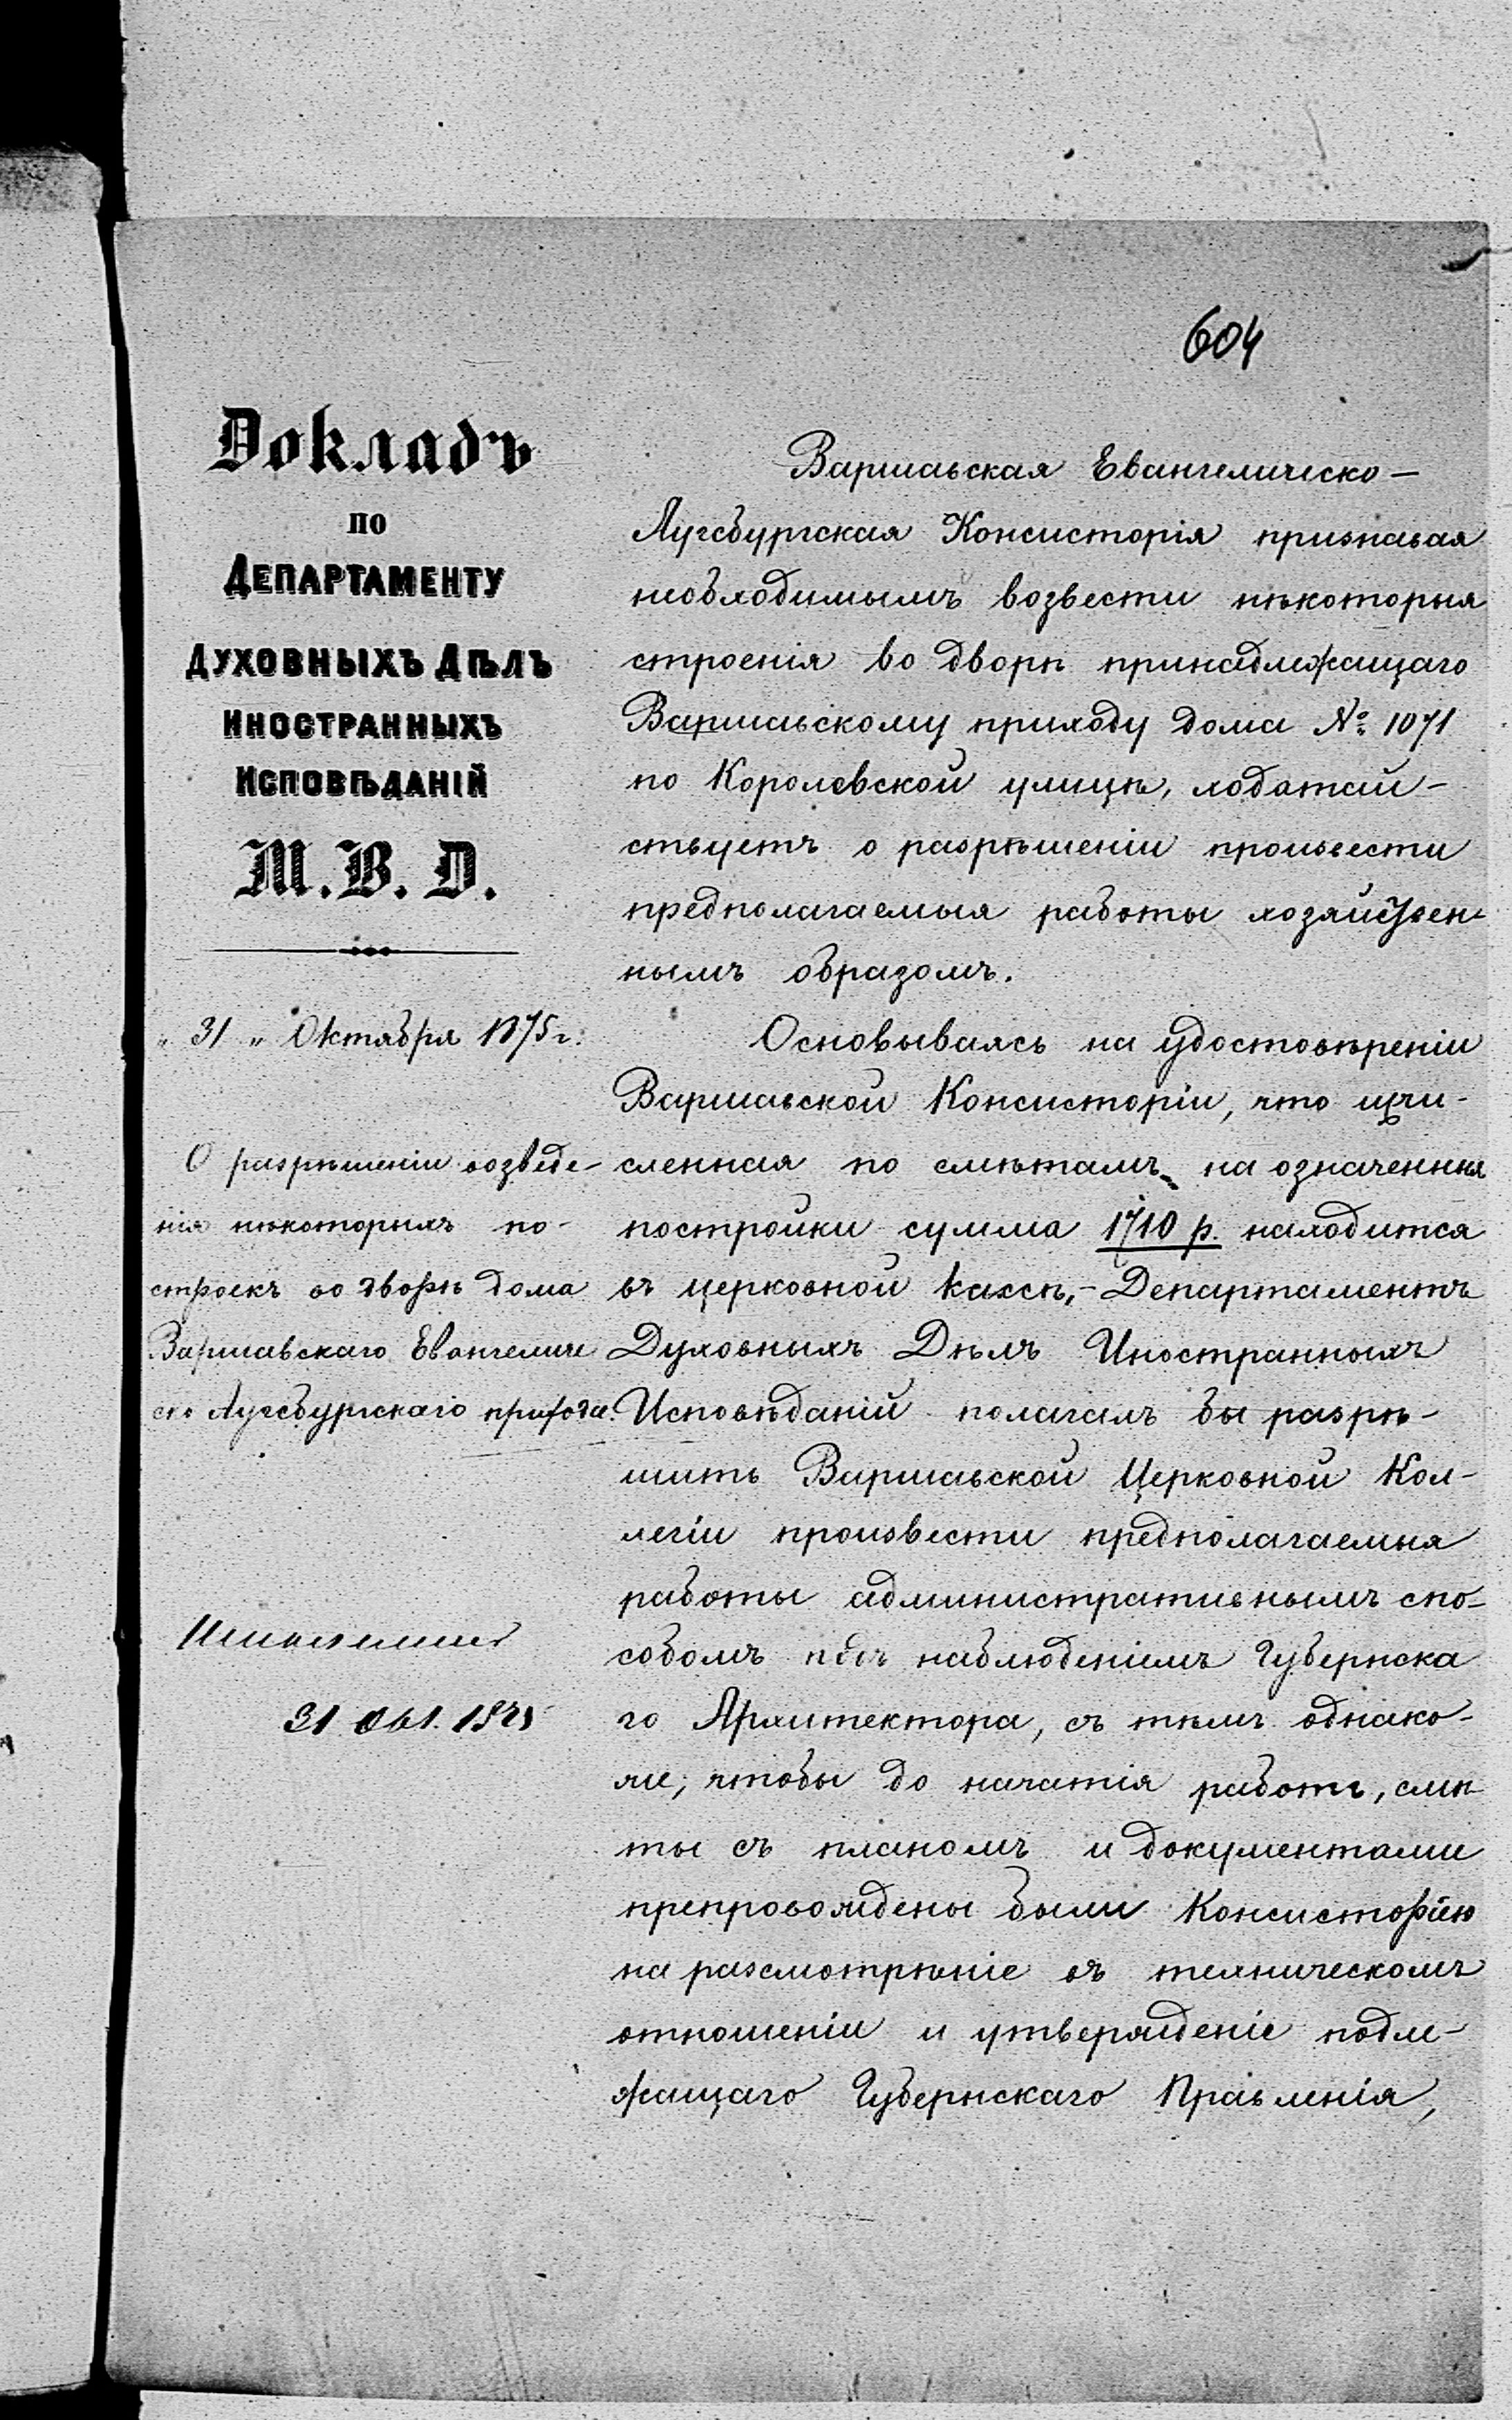 604
Докладъ
по
Департаменту
Духовныхъ Дѣлъ
Иностранныхъ
Исповѣданій
М. В. Д.
„ 31 „ Октября 1875 г.
О разрѣшеніи возведе-
нія нѣкоторыхъ по-
строекъ во дворѣ дома
Варшавскаго Евангеличе
ско Аугсбургскаго прихода.
31 Окт. 1875
Варшавская Евангелическо-
Аугсбургская Консисторія признавая
необходимымъ возвести нѣкоторыя
строенія во дворѣ принадлежащаго
Варшавскому приходу дома № 1071
по Королевской улицѣ, ходатай-
ствуетъ о разрѣшеніи произвести
предполагаемыя работы хозяйствен-
нымъ образомъ.
Основываясь на удостовѣреніи
Варшавской Консисторіи, что исчи-
сленная по смѣтамъ на означенныя
постройки сумма 1710 р. находится
въ церковной кассѣ, - Департаментъ
Духовныхъ Дѣлъ Иностранныхъ
Исповѣданій полагалъ бы разрѣ-
шить Варшавской Церковной Кол-
легіи произвести предполагаемыя
работы административнымъ спо-
собомъ подъ наблюденіемъ Губернска
го Архитектора, съ тѣмъ однако-
же, чтобы до начатія работъ, смѣ
ты съ планомъ и документами
препровождены были Консисторіею
на разсмотрѣніе въ техническомъ
отношеніи и утвержденіе подле-
жащаго Губернскаго Правленія,